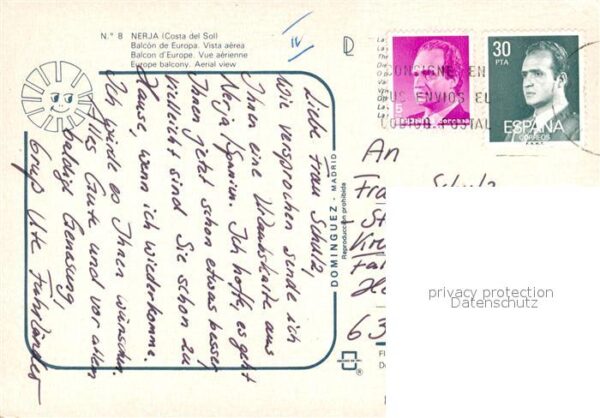 N.° 8 NERJA (Costa del Sol)
Balcón de Europa. Vista aérea
Balcon d'Europe. Vue aérienne
Europe balcony. Aerial view
IV
Liebe Frau Schulz,
wie versprochen sende ich
Ihnen eine Urlaubskarte aus
Nerja, Spanien. Ich hoffe, es geht
Ihnen jetzt schon etwas besser,
vielleicht sind Sie schon zu
Hause, wenn ich wiederkomme.
Ich würde es Ihnen wünschen.
Alles Gute und vor allem
baldige Genesung,
Gruß Ute Fuhrländer
DOMINGUEZ - MADRID
Reproducción prohibida
5
30
PTA
ESPAÑA
CORREOS
CONSIGNE EN
SUS ENVIOS EL
CODIGO POSTAL
An
Fra Schulz
St
63
privacy protection
Datenschutz